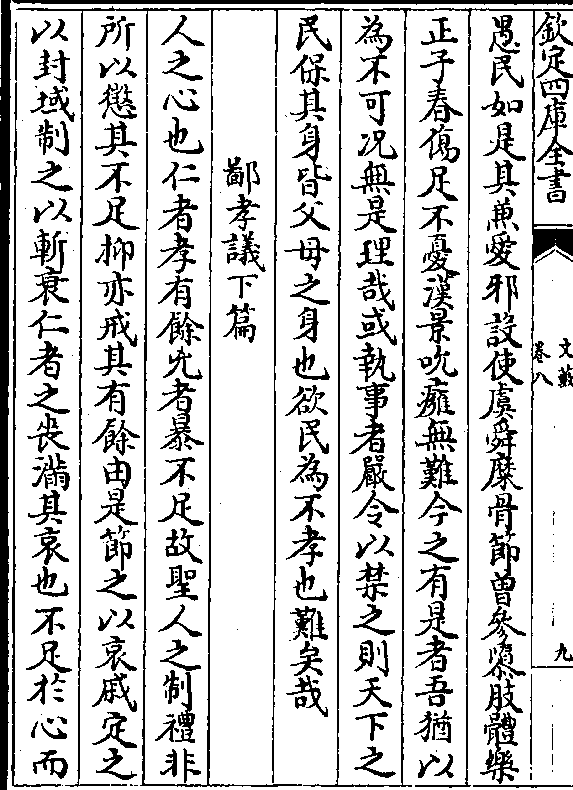 欽定四庫全書
文藪
卷八
九
愚民如是其兼愛邪設使虞舜糜骨節曾參隳肢體樂
正子春傷足不憂漢景吮癰無難今之有是者吾猶以
為不可況無是理哉或執事者嚴令以禁之則天下之
民保其身皆父母之身也欲民為不孝也難矣哉
鄙孝議下篇
人之心也仁者孝有餘兇者暴不足故聖人之制禮非
所以懲其不足抑亦戒其有餘由是節之以哀戚定之
以封域制之以斬衰仁者之喪滿其哀也不足於心而